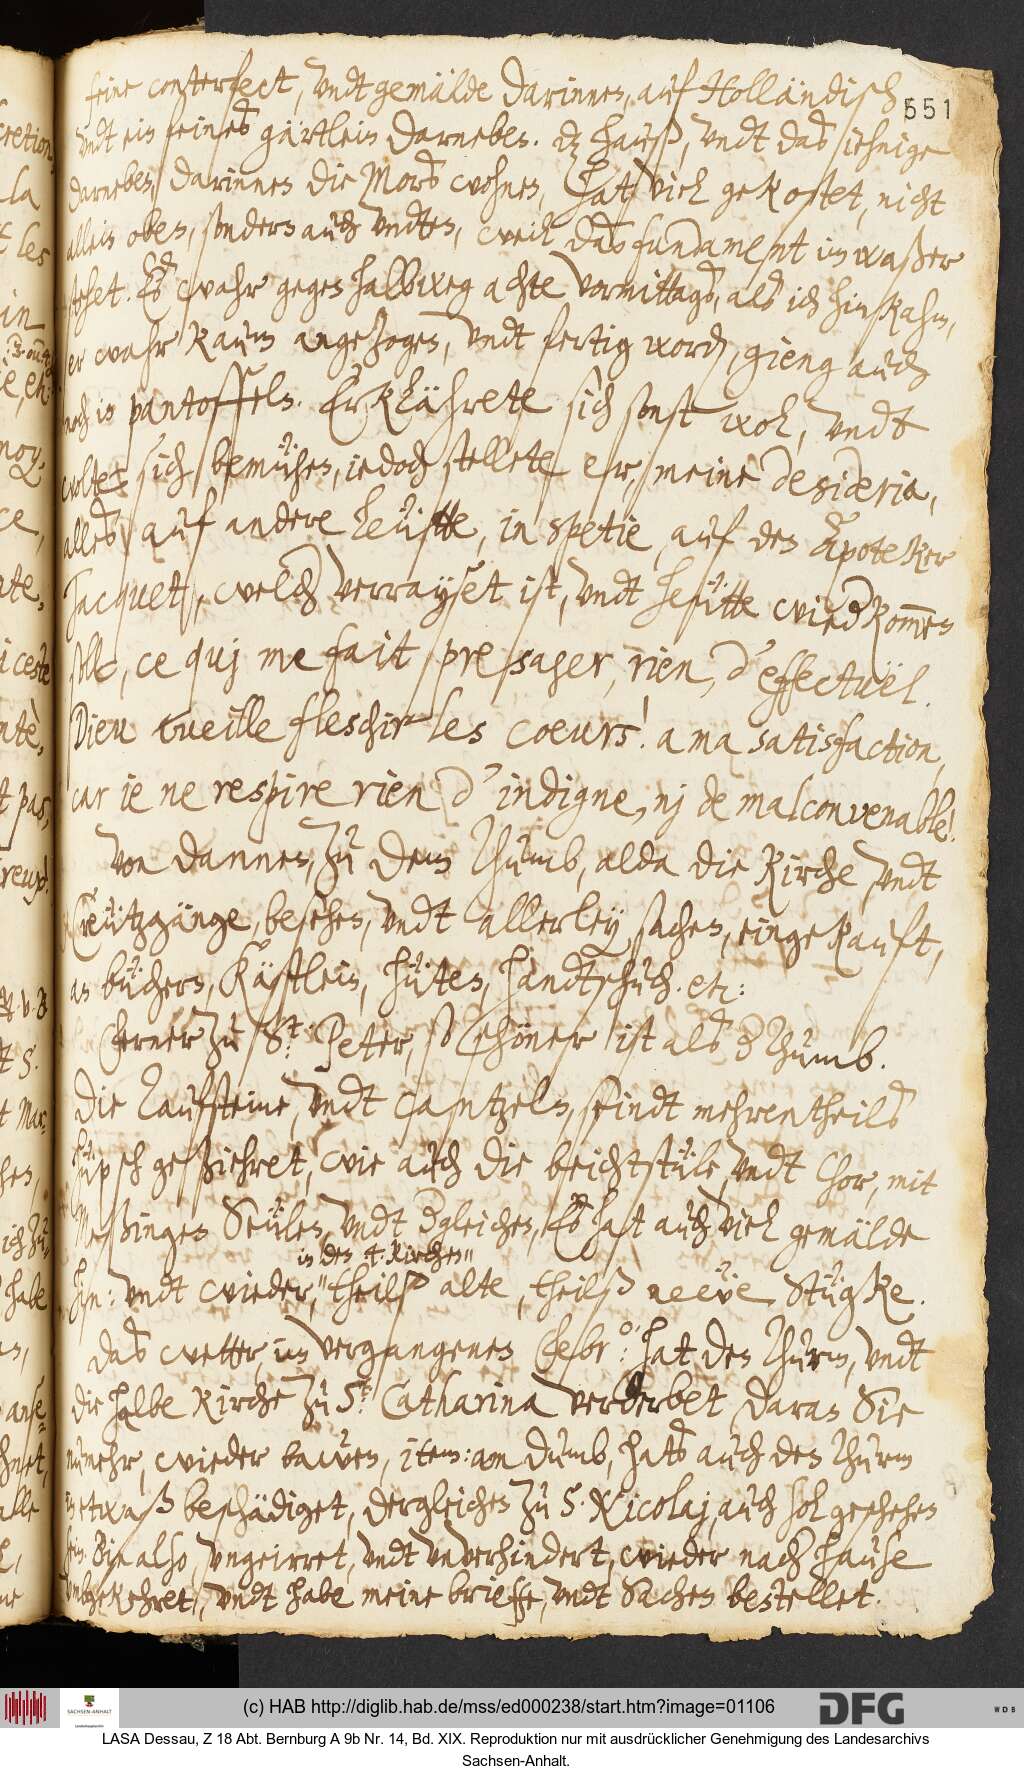 feine conterfect, vndt gemälde darinnen, auf Holländisch
551
vndt ein feines gärtlein darneben. dz hauß, vndt das iehnige
darneben, darinnen die Mors wohnen, hat viel gekostet, nicht
allein oben, sondern auch vndten, weil das fundament im waßer
stehet. Es wahr gegen halbweg achte vormittags, als ich hinkahm,
er wahr kaum angezogen, vndt fertig word, gieng auch
noch in pantoffeln. Erklährete sich sonst wol, vndt
wolte sich bemühen, iedoch stellete er, meine desideria,
alles auf andere leütte, in spetie auf den Apoteker
Jacquet, welch verrayset ist, vndt heütte wiedkom̅en
solle, ce quj me fait presager, rien, d'effectuël.
Dieu vueille fleschir les coeurs! a ma satisfaction,
car ie ne respire rien d'indigne, nj de malconvenable!
Von dannen, zu dem Thumb, alda die Kirche vndt
Creützgänge, besehen, vndt allerley sachen, eingekauft,
an büchern, Kästlein, hüten, handtschuch. etc:
Ferner zu St: Peter, so schöner ist als d Thumb.
Die Taufsteine, vndt Cantzeln, seindt mehrentheils
hüpsch gezieret, wie auch die beichtstüle, vndt Chor, mit
Meßingen Seülen, vndt dgleichen, Es hat auch viel gemälde
in den 4. Kirchen"
hin: vndt wieder," theilß alte, theilß neẅe Stügke.
Das wetter, im vergangenen Febr:o hat den Thurm, vndt
die halbe Kirche zu St: Catharina verderbet daran Sie
nunmehr, wieder bawen, item: am dumb, hats auch den Thurm
in etwaß beschädiget, dergleichen zu S. Nicolaj, auch sol geschehen
sein. Bin also, vngeirret, vndt vnverhindert, wieder nach hause
vmbgekehret, vndt habe meine brieffe, vndt Sachen bestellet.
(c) HAB http://diglib.hab.de/mss/ed000238/start.htm?image=01106
SACHSEN-ANHALT
DFG
WDB
LASA Dessau, Z 18 Abt. Bernburg A 9b Nr. 14, Bd. XIX. Reproduktion nur mit ausdrücklicher Genehmigung des Landesarchivs
Sachsen-Anhalt.